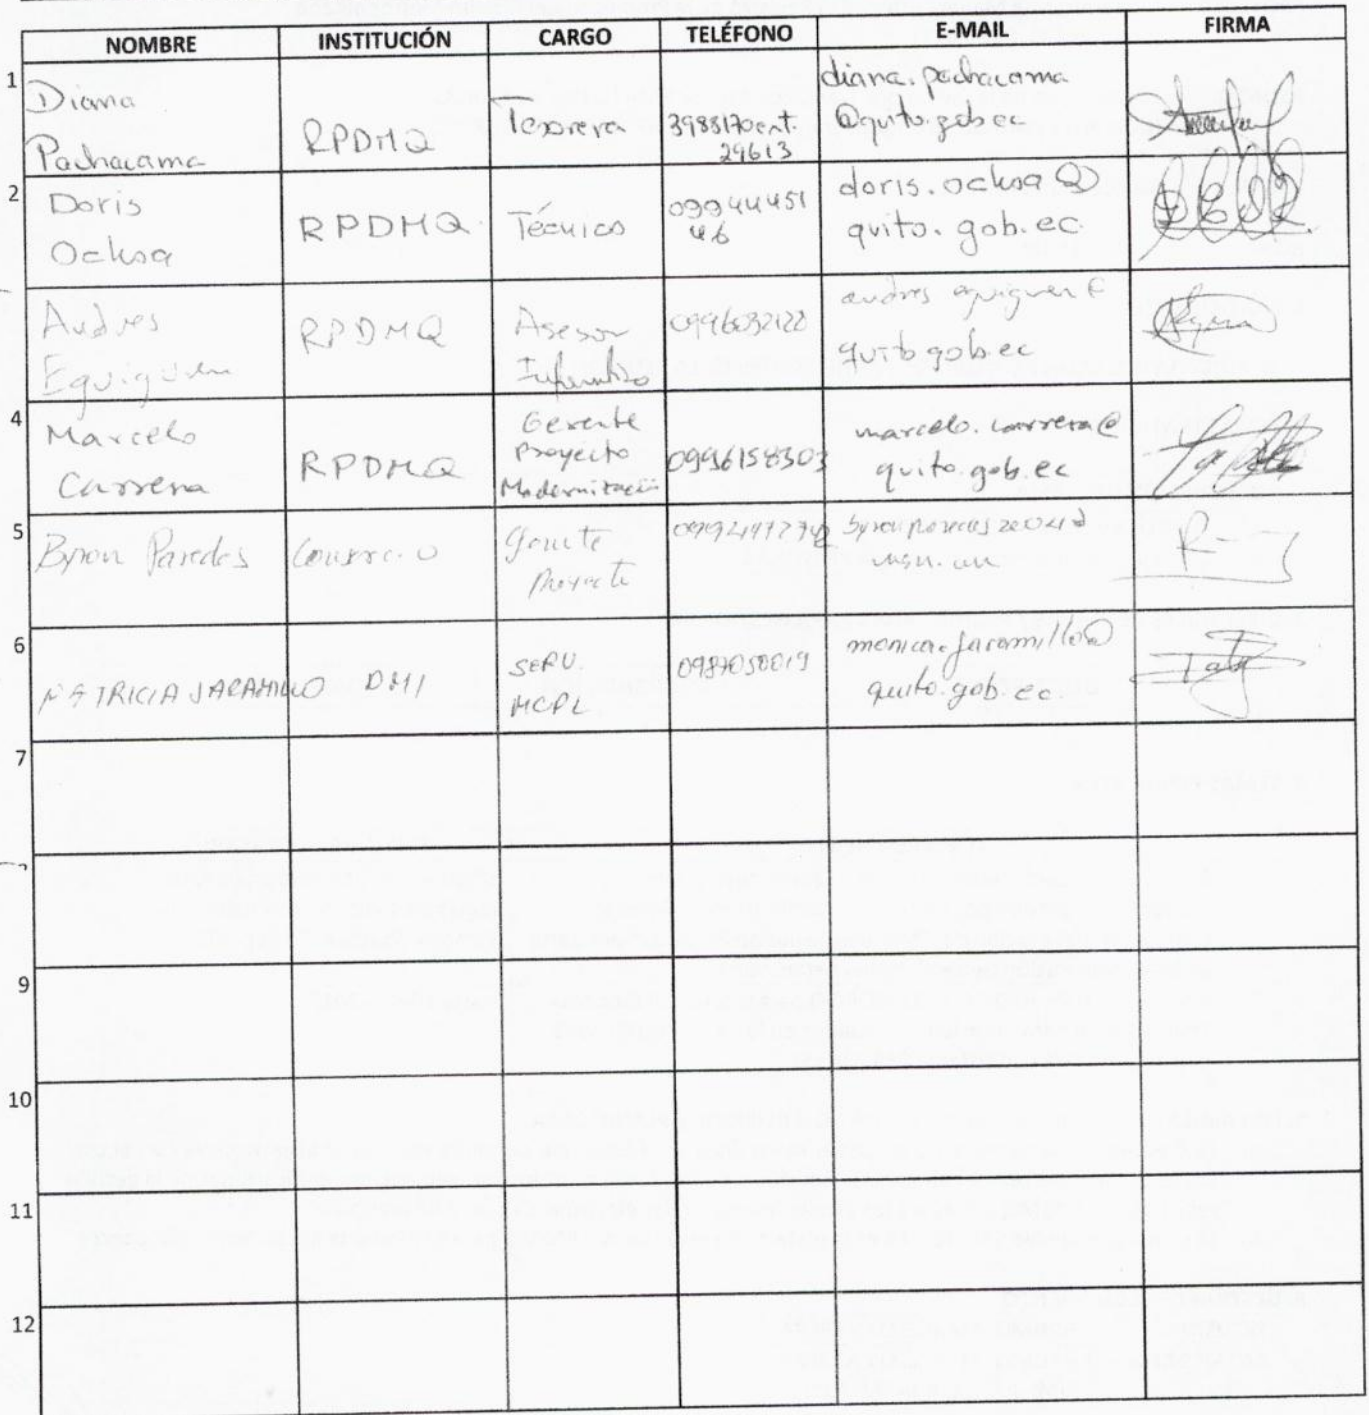 NOMBRE INSTITUCIÓN CARGO TELÉFONO E-MAIL FIRMA
1
Diana
Pachacama
RPDMQ
Tesorera
3988170 ext.
29613
diana.pachacama
@quito.gob.ec
2
Doris
Ochoa
RPDMQ
Técnico
09944451
46
doris.ochoa@
quito.gob.ec
Andres
Eguiguren
RPDMQ
Asesor
Informático
quito.gob.ec
4
Marcelo
Carrera
RPDMQ
Gerente
Proyecto
Modernización
0996158303
marcelo.carrera@
quito.gob.ec
5
Byron Paredes
Consorcio
Proyecto
6
PATRICIA JARAMILLO
DMI
SERV.
MCPL
0987050019
monica.jaramillo@
quito.gob.ec
7
9
10
11
12